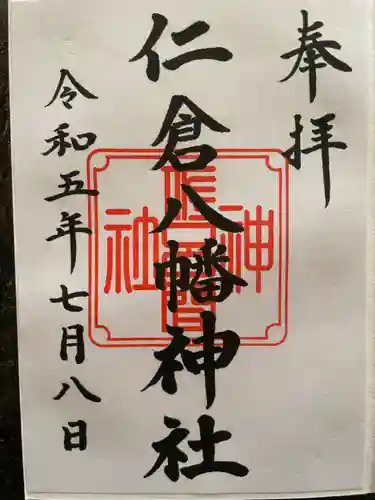 奉拝
仁倉八幡神社
令和五年七月八日
神
社